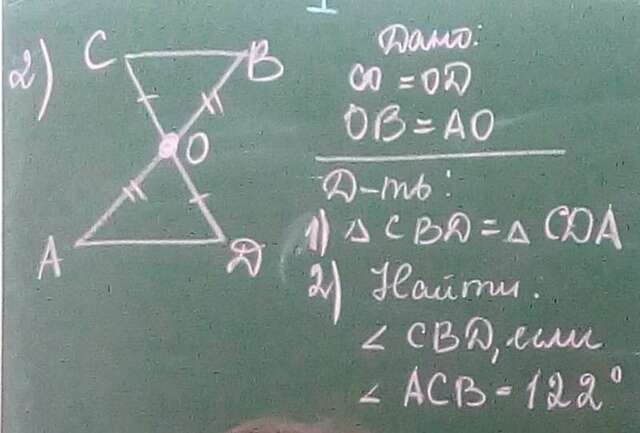 2)
C
B
O
A
D
Дано:
CO = OD
OB = AO
Д-ть:
1) △ CBD = △ CDA
2) Найти:
∠ CBD, если
∠ ACB = 122°